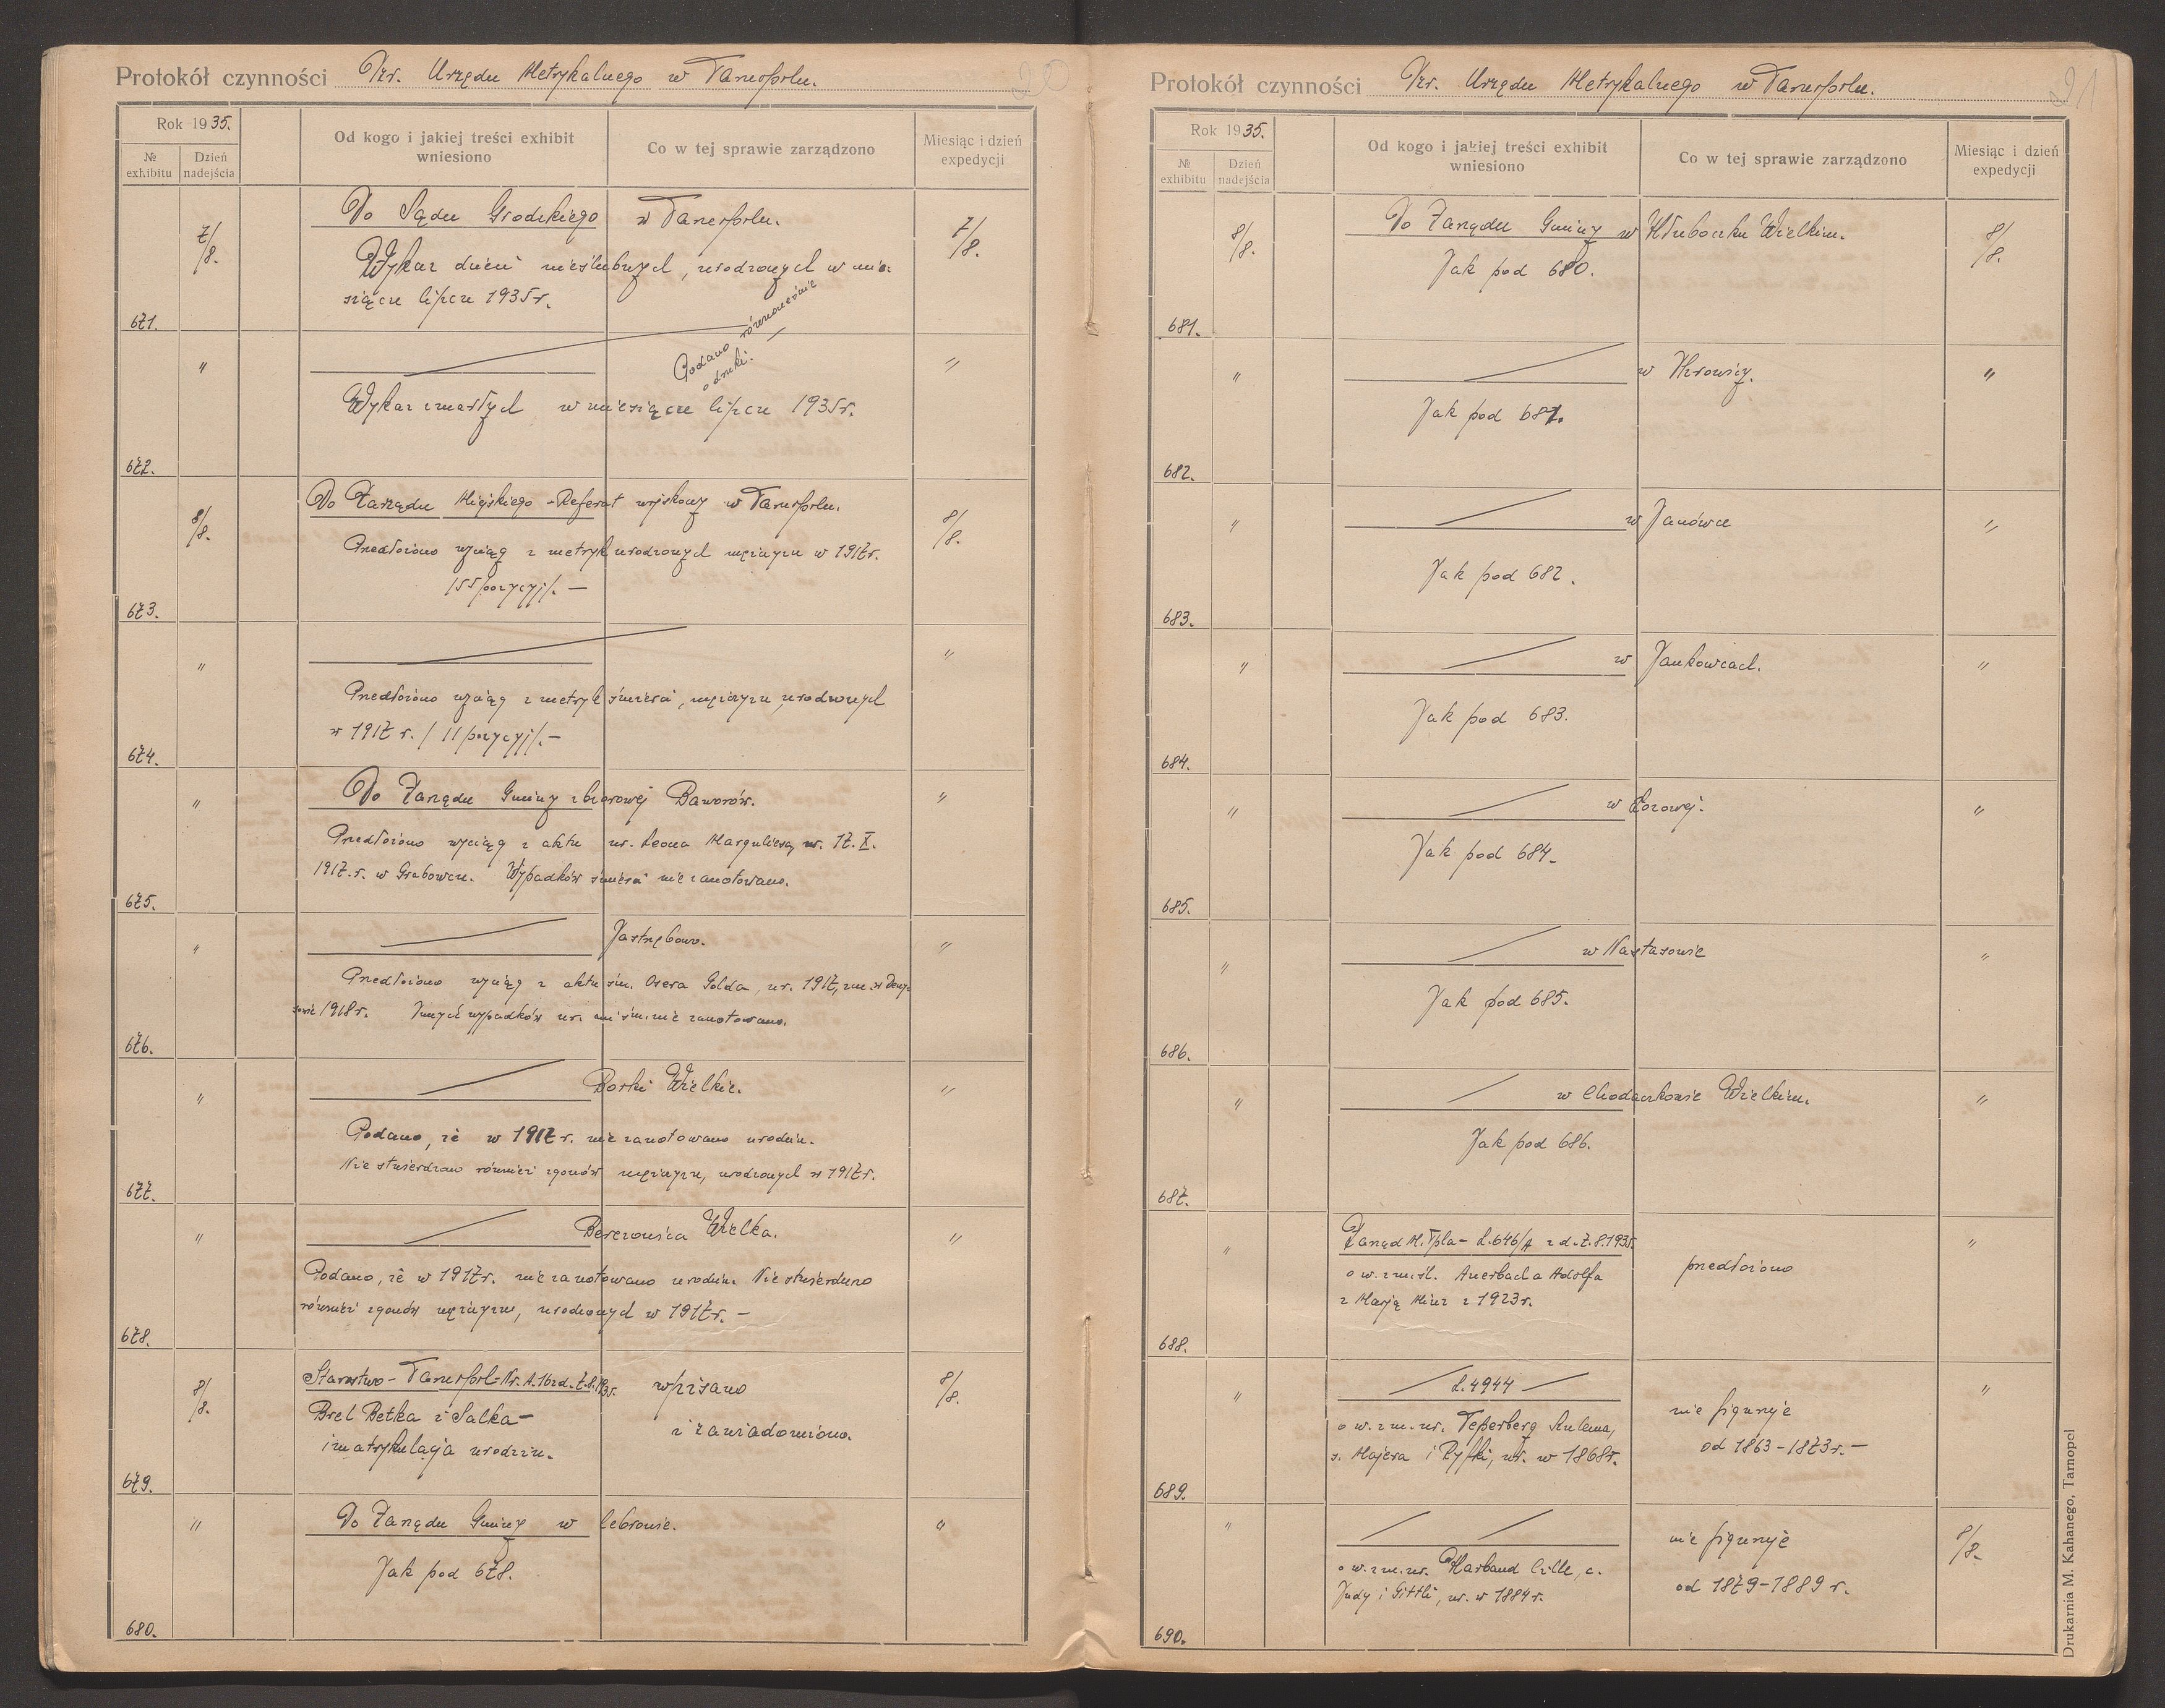 Protokół czynności Izr. Urzędu Metrykalnego w Tarnopolu.
20
Rok 1935.
№ exhibitu
Dzień nadejścia
Od kogo i jakiej treści exhibit wniesiono
Co w tej sprawie zarządzono
Miesiąc i dzień expedycji
671.
7/8.
Do Sądu Grodzkiego w Tarnopolu.
Wykaz dzieci nieślubnych, urodzonych w mie-
siącu lipcu 1935 r.
7/8.
672.
"
Podano równocześnie
o druki.
Wykaz zmarłych w miesiącu lipcu 1935 r.
"
673.
8/8.
Do Zarządu Miejskiego - Referat wojskowy w Tarnopolu.
Przedłożono wyciąg z metryk urodzonych mężczyzn w 1917 r.
/55 pozycyj/. —
8/8.
674.
"
Przedłożono wyciąg z metryk śmierci, mężczyzn urodzonych
w 1917 r. / 11 pozycyj/. —
"
675.
"
Do Zarządu Gminy zbiorowej Baworów.
Przedłożono wyciąg z aktu ur. Leona Marguliesa, ur. 17.X.
1917. r. w Grabowcu. Wypadków śmierci nie zanotowano.
"
676.
"
Jastrębowo.
Przedłożono wyciąg z aktu śm. Osera Golda, ur. 1917, zm. w Deny-
sowie 1918 r. Innych wypadków ur. ani śm. nie zanotowano.
"
677.
"
Borki Wielkie.
Podano, że w 1917 r. nie zanotowano urodzin.
Nie stwierdzono również zgonów mężczyzn, urodzonych w 1917 r.
"
678.
"
Berezowica Wielka.
Podano, że w 1917 r. nie zanotowano urodzin. Nie stwierdzono
również zgonów mężczyzn, urodzonych w 1917 r. —
"
679.
8/8.
Starostwo - Tarnopol - Nr. A. 16 z d. 7.8.1935.
Brel Betka i Salka —
imatrykulacja urodzin.
wpisano
i zawiadomiono.
8/8.
680.
"
Do Zarządu Gminy w Cebrowie.
Jak pod 678.
"
Protokół czynności Izr. Urzędu Metrykalnego w Tarnopolu.
21
Rok 1935.
№ exhibitu
Dzień nadejścia
Od kogo i jakiej treści exhibit wniesiono
Co w tej sprawie zarządzono
Miesiąc i dzień expedycji
681.
8/8.
Do Zarządu Gminy w Hłuboczku Wielkim.
Jak pod 680.
8/8.
682.
"
w Ihrowicy.
Jak pod 681.
"
683.
"
w Janówce
Jak pod 682.
"
684.
"
w Jankowcach.
Jak pod 683.
"
685.
"
w Łozowej.
Jak pod 684.
"
686.
"
w Nastasowie
Jak pod 685.
"
687.
"
w Chodaczkowie Wielkim.
Jak pod 686.
"
688.
"
Zarząd M. Tpla - L.646/A z d. 7.8.1935.
o w. z m. śl. Auerbacha Adolfa
z Marją Münz z 1923 r.
przedłożono
"
689.
"
L.4944
o w. z m. ur. Teperberg Sulema,
s. Majera i Ryfki, ur. w 1868 r.
nie figuruje
od 1863-1873 r. —
"
690.
"
o w. z m. ur. Harband Cille, c.
Judy i Gittli, ur. w 1884 r.
nie figuruje
od 1879-1889 r.
8/8.
Drukarnia M. Kahanego, Tarnopol